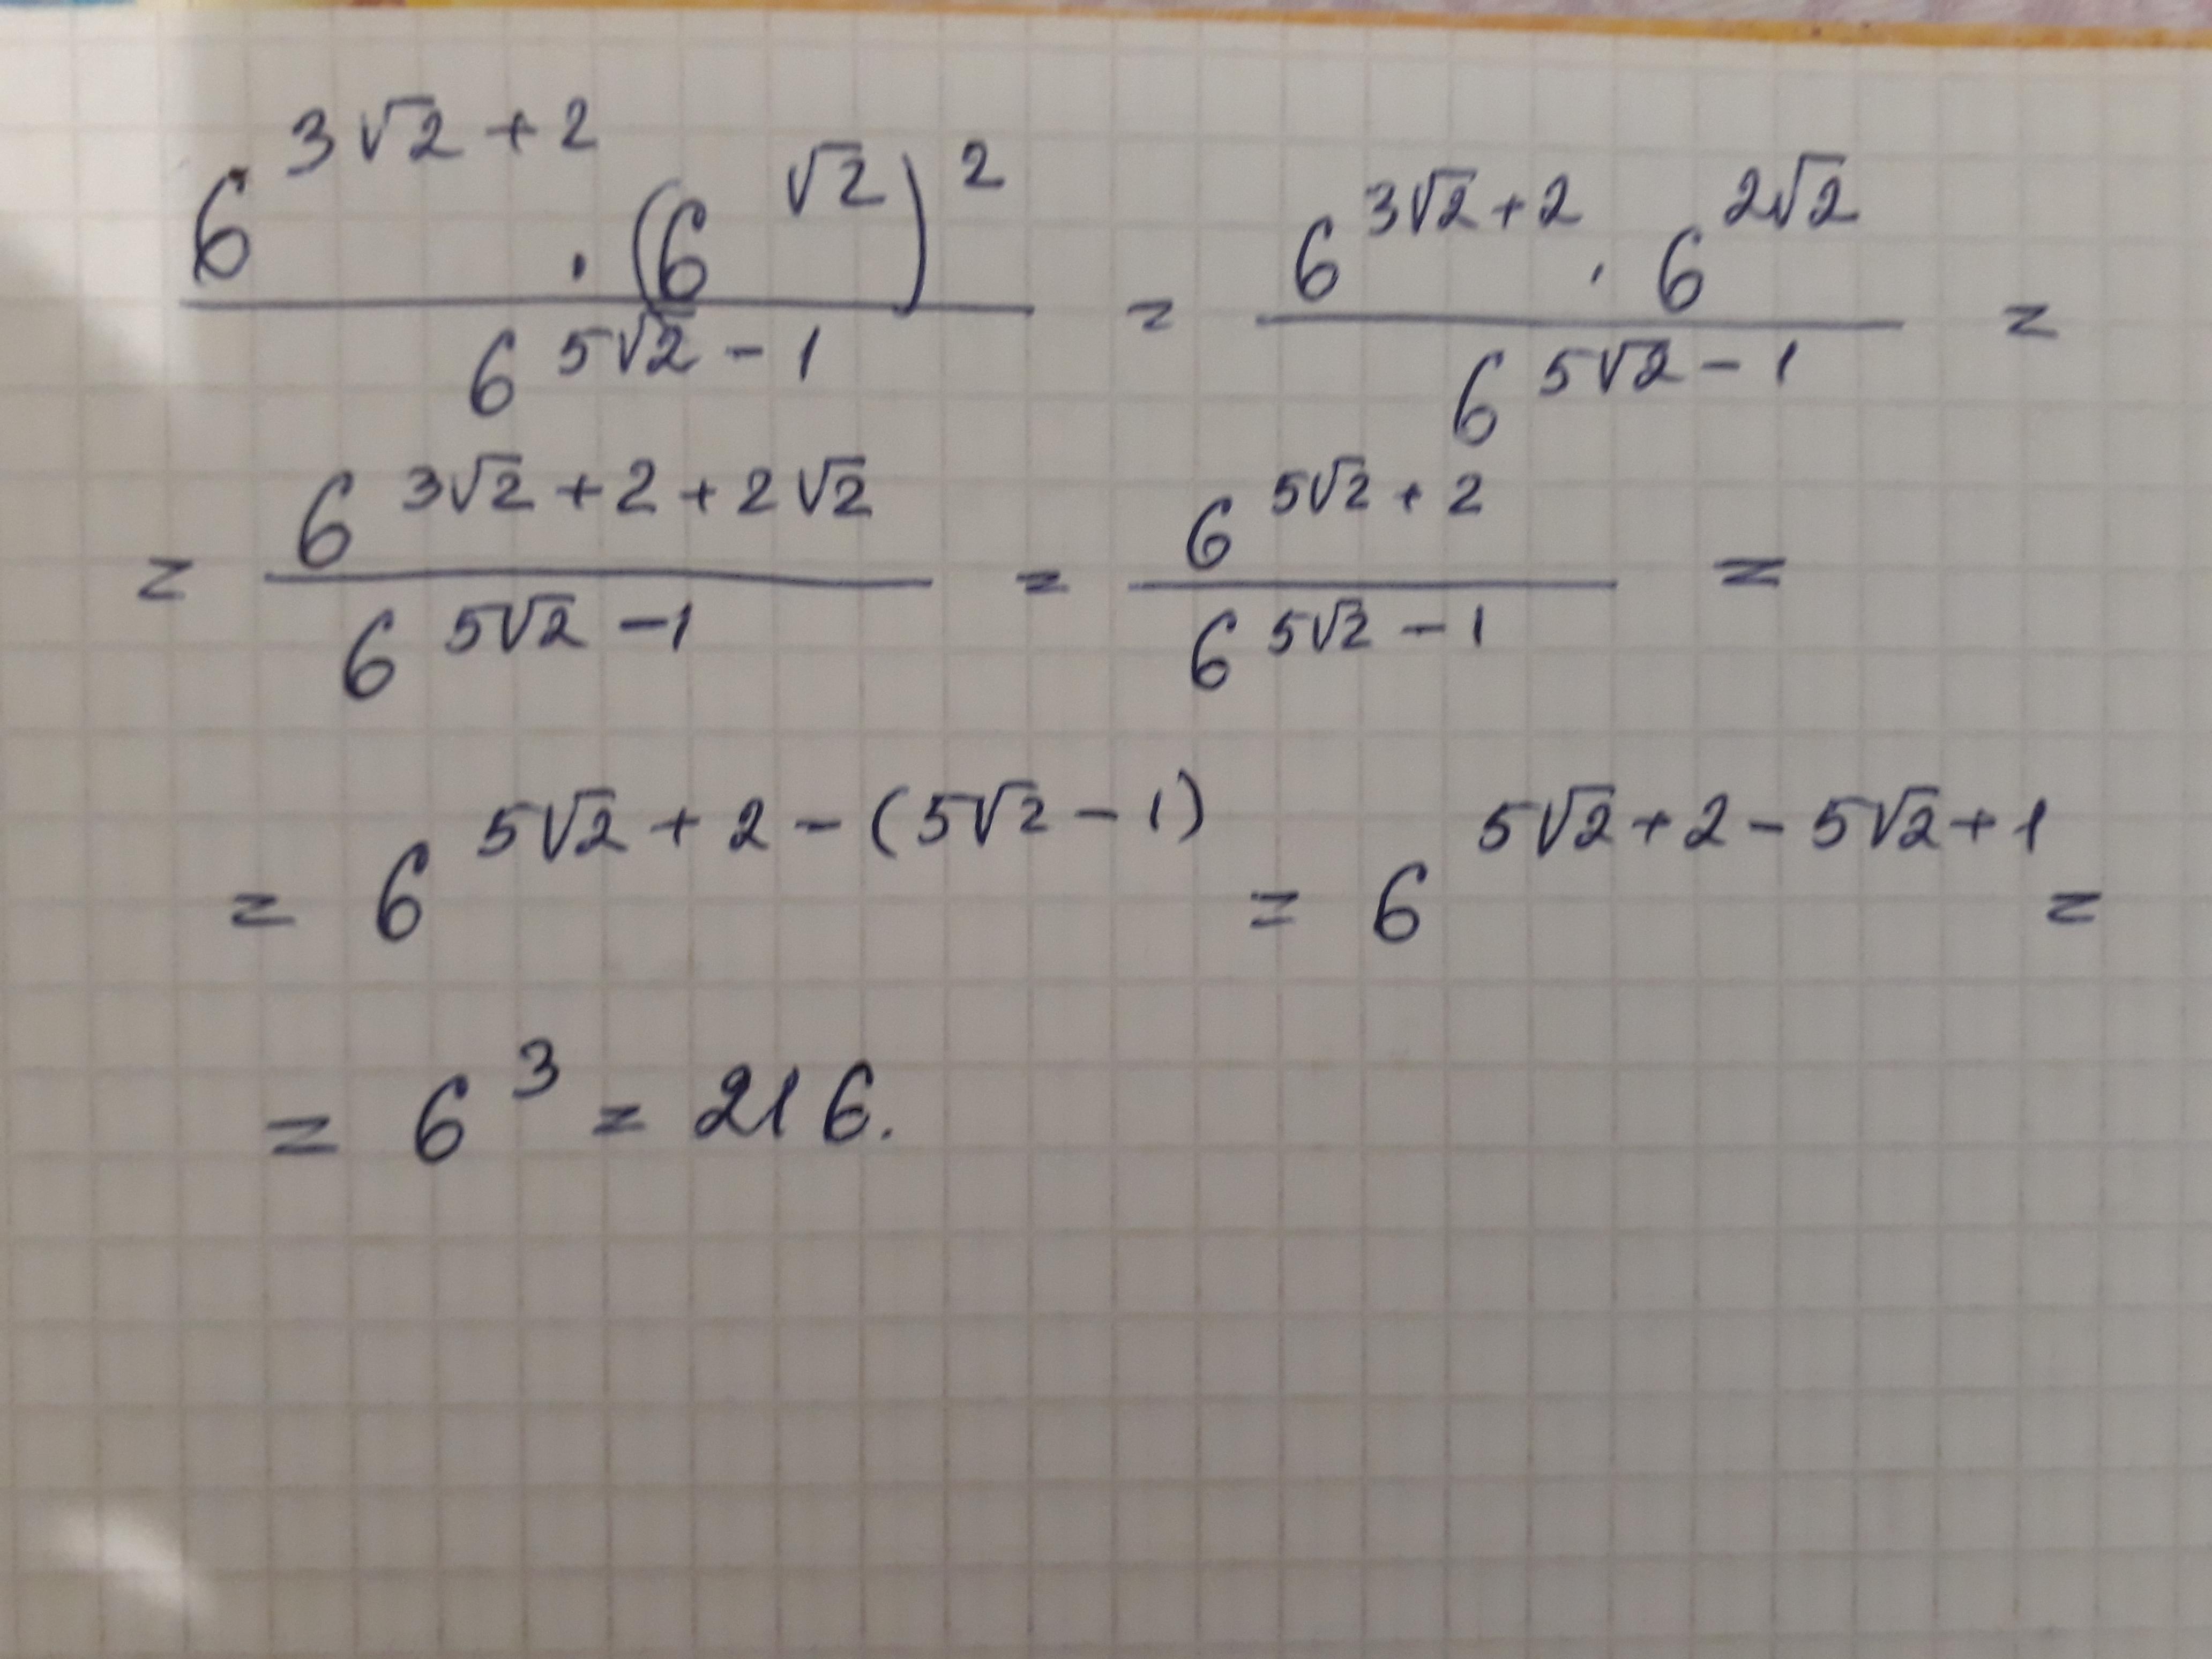 6^{3√2+2} · (6^{√2})^2 / 6^{5√2-1} = 6^{3√2+2} · 6^{2√2} / 6^{5√2-1} =
= 6^{3√2+2+2√2} / 6^{5√2-1} = 6^{5√2+2} / 6^{5√2-1} =
= 6^{5√2+2-(5√2-1)} = 6^{5√2+2-5√2+1} =
= 6^3 = 216.